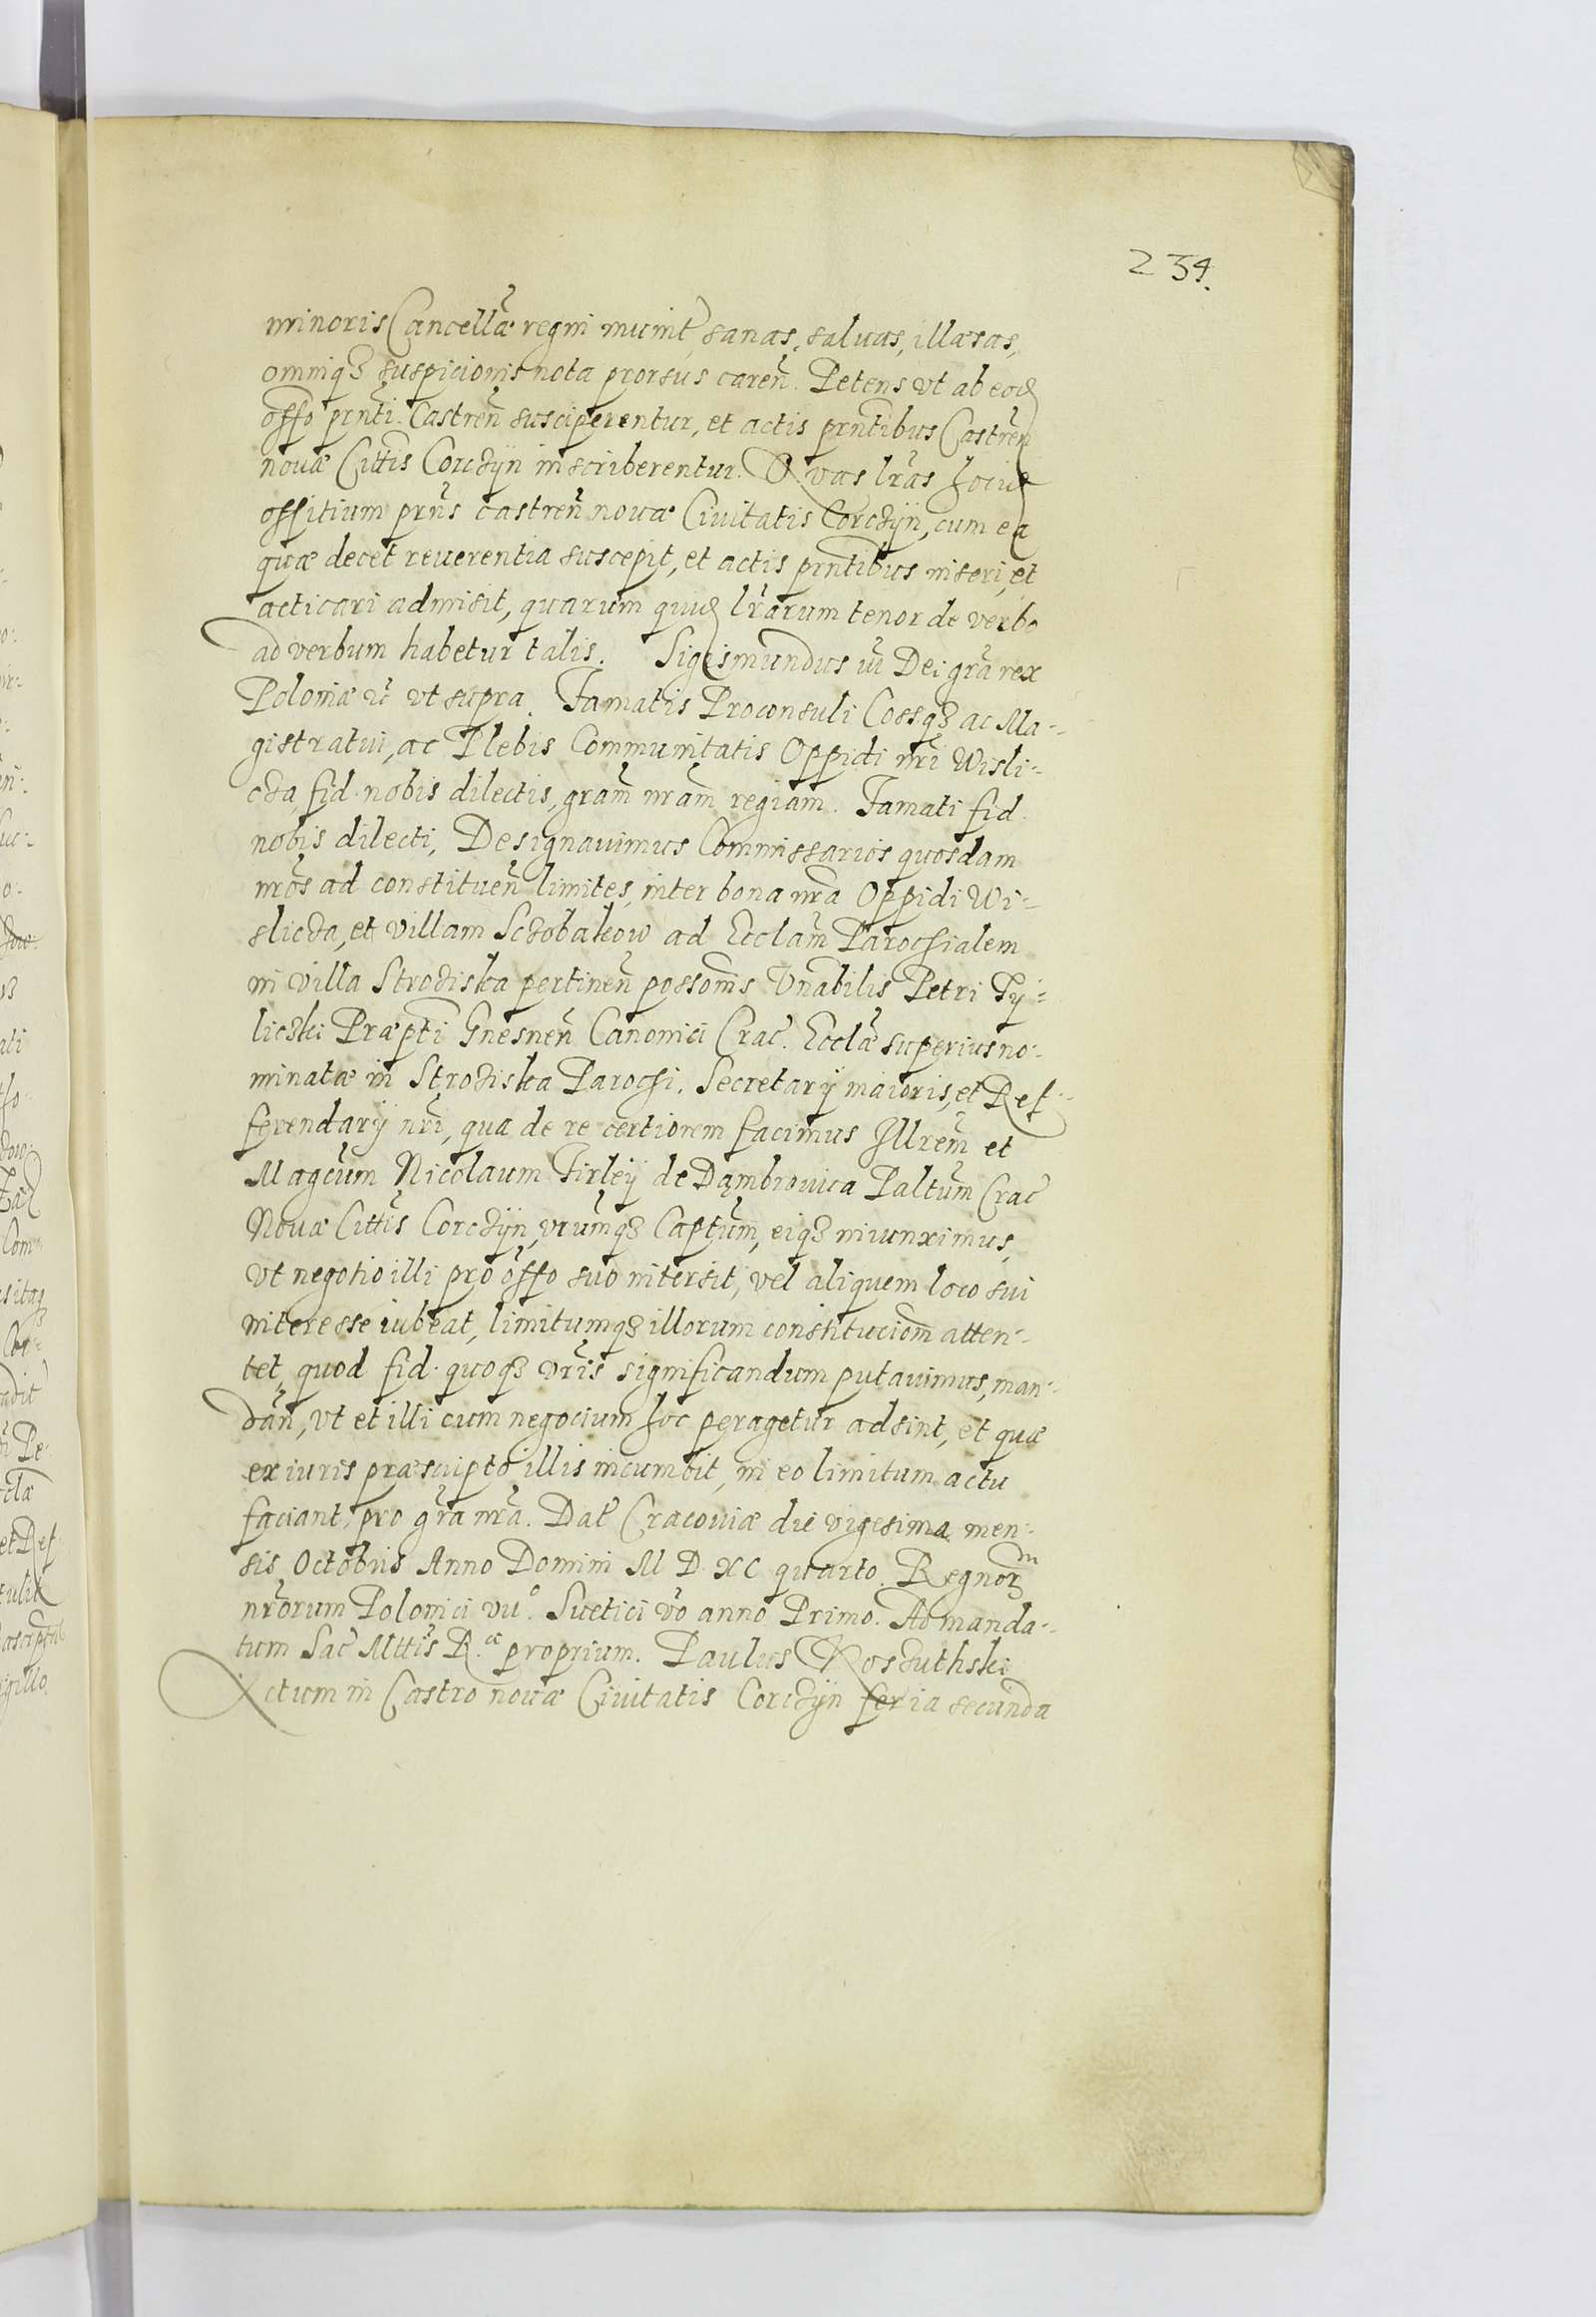 234.
minoris Cancellæ regni munit, sanas, saluas, illæsas,
omniq3 suspicionis nota prorsus caren. Petens vt ab eod
offo prnti Castren susciperentur, et actis prntibus Castren
nouæ Cittis Corczÿn inscriberentur. Quas lras hocue
offitium prns castren nouæ Ciuitatis Corczÿn, cum ea
quæ decet reuerentia suscepit, et actis prntibus inseri, et
acticari admisit, quarum quid lrarum tenor de verbo
ad verbum habetur talis. Sigismundus iii Dei gra rex
Poloniæ vt supra. Famatis Proconsuli Cossq3 ac Ma-
gistratui, ac Plebis Communitatis Oppidi nri Wisli-
cza, fid. nobis dilectis, gram nram regiam. Famati fid.
nobis dilecti, Designauimus Commissarios quosdam
nros ad constituen limites, inter bona nra Oppidi Wi-
slicza, et villam Sczobakow ad Ecclam Parochialem
in villa Stroziska pertinen possonis Vnabilis Petri Tÿ-
liczki Præpti Gnesnen Canonici Crac. Ecclæ superius no-
minatæ in Stroziska Parochi. Secretarÿ maioris, et Ref-
ferendarÿ nri, qua de re certiorem facimus Illrem et
Magcum Nicolaum Firleÿ de Dąmbrouica Paltum Crac
Nouæ Cittis Corczÿn, vrumq3 Captum, eiq3 iniunximus,
vt negotio illi pro offo suo intersit, vel aliquem loco sui
interesse iubeat, limitumq3 illorum constituciom atten-
tet, quod fid. quoq3 vris significandum putauimus, man-
dan, vt et illi cum negocium hoc peragetur adsint, et quæ
ex iuris præscripto illis incumbit, in eo limitum actu
faciant, pro gra nra. Dat Cracouiæ die vigesima men-
sis Octobris Anno Domini M D XC quarto. Regnor
nrorum Polonici vii°. Suetici vo anno Primo. Ad manda-
tum Sac Mttis R. æ proprium. Paulus Kosczuthski
Actum in Castro nouæ Ciuitatis Corczÿn feria secunda